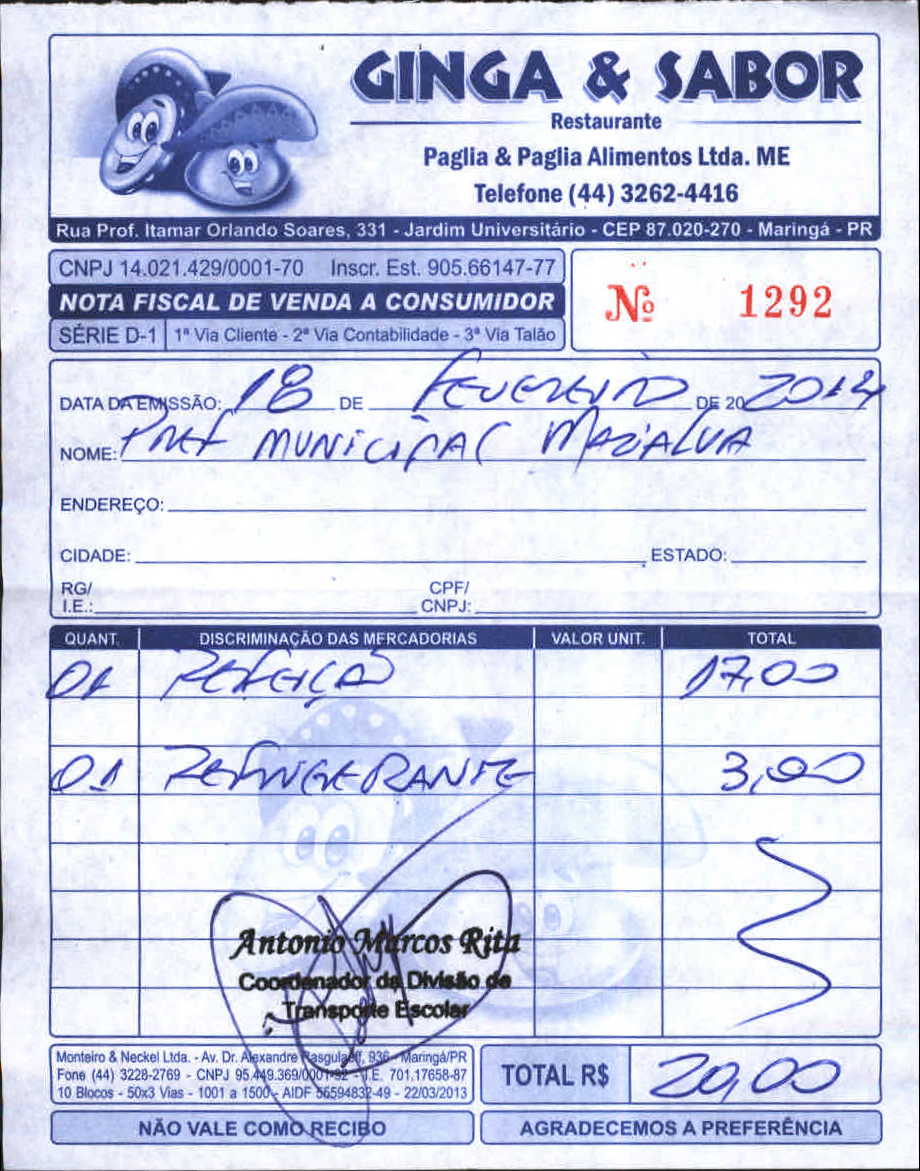 GINGA & SABOR
Restaurante
Paglia & Paglia Alimentos Ltda. ME
Telefone (44) 3262-4416
Rua Prof. Itamar Orlando Soares, 331 - Jardim Universitário - CEP 87.020-270 - Maringá - PR
CNPJ 14.021.429/0001-70 Inscr. Est. 905.66147-77
NOTA FISCAL DE VENDA A CONSUMIDOR
Nº 1292
SÉRIE D-1 1ª Via Cliente - 2ª Via Contabilidade - 3ª Via Talão
DATA DA EMISSÃO: 18 DE FEVEREIRO DE 20 2014
NOME: Pref MUNICIPAL MARIALVA
ENDEREÇO:
CIDADE: ESTADO:
RG/ CPF/
I.E.: CNPJ:
QUANT. DISCRIMINAÇÃO DAS MERCADORIAS VALOR UNIT. TOTAL
01 REFEIÇÃO 17,00
01 REFRIGERANTE 3,00
Antonio Marcos Rita
Coordenador da Divisão de
Transporte Escolar
Monteiro & Neckel Ltda. - Av. Dr. Alexandre 936 - Maringá/PR
Fone (44) 3228-2769 - CNPJ 95.449.369/0001-92 - I.E. 701.17658-87
10 Blocos - 50x3 Vias - 1001 a 1500 - AIDF 56594832-49 - 22/03/2013
TOTAL R$ 20,00
NÃO VALE COMO RECIBO
AGRADECEMOS A PREFERÊNCIA